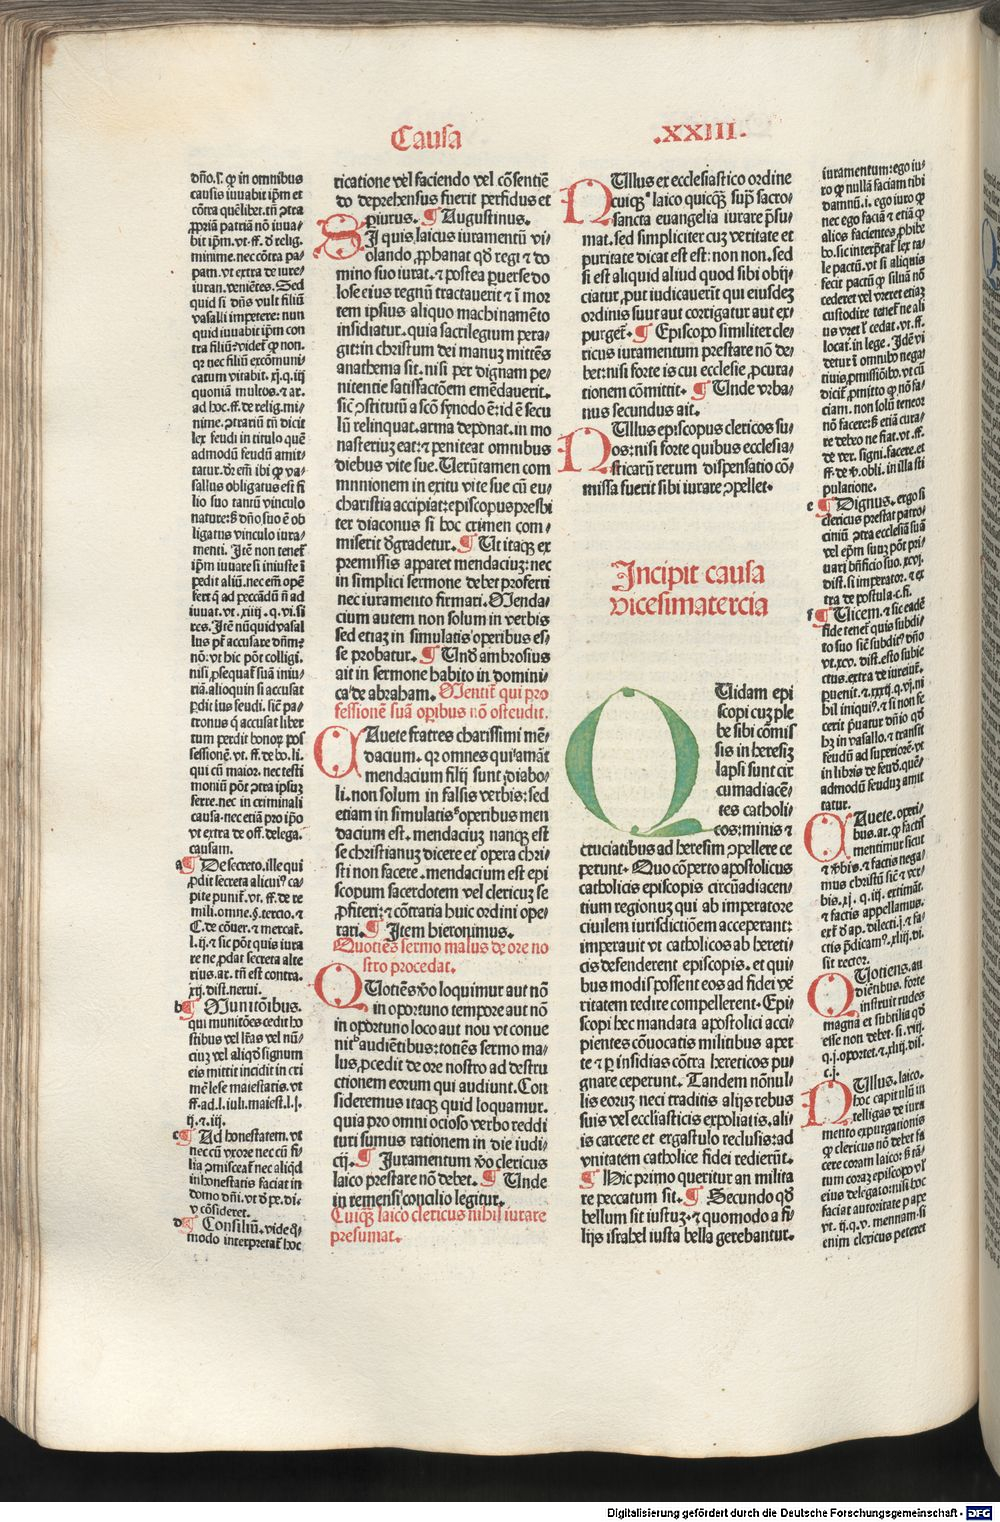 Causa
.XXIII.
dn̄o.s. ꝙ in omnibus
causis iuuabit ip̄m et
cōtra quēlibet. tn̄ ɔtra
ꝓpriā patriā nō iuua/
bit ip̄m. vt. ff. de relig.
minime. nec cōtra pa/
pam. vt extra de iure/
iuran. veniētes. Sed
quid si dn̄s vult filiū
vasalli impetere: nun
quid iuuabit ip̄m con
tra filiū? videt ꝙ non.
qr nec filiū excōmuni/
catum vitabit. xj. q. iij
quoniā multos. ⁊ ar.
ad hoc. ff. de relig. mi/
nime. ɔtrariū tn̄ dicit
lex feudi in titulo quē
admodū feudū amit/
tatur. dr em̄ ibi ꝙ va/
sallus obligatus est fi
lio suo tantū vinculo
nature: sꝫ dn̄o suo ē ob
ligatus vinculo iura/
menti. Itē non tenet
ip̄m iuuare si iniuste ī
petit aliū. nec em̄ opē
fert ꝗ ad peccādū n̄ ad
iuuat. vt. xiiij. q. vi. si
res. Itē nūquid vasal
lus pt̄ accusare dn̄m?
nō: vt hic pōt colligi.
nisi ꝓsequat suā iniu/
riā. alioquin si accusat
perdit ius feudi. sic̄ pa/
tronus ꝗ accusat liber
tum perdit bonoꝝ pos
sessionē. vt. ff. de bo. li.
qui cū maior. nec testi
moniū pōt ɔtra ipsuꝫ
ferre. nec in criminali
causa. nec etiā pro ip̄o
vt extra de off. delega.
causam.
a ¶ De secreto. ille qui
ꝓdit secreta alicui⁹ ca/
pite punit. vt. ff. de re
mili. omne. §. tercio. ⁊
C. de cōuer. ⁊ mercat.
l. ij. ⁊ sic pōt quis iura
re ne ꝓdat secreta alte
rius. ar. tn̄ est contra.
xij. dist. nerui.
b ¶ Munitōibus.
qui munitōes tedit ho
stibus vel lr̄as vel nū/
ciuꝫ vel aliqd̄ signum
eis mittit incidit in cri
mē lese maiestatis. vt
ff. ad. l. iuli. maiest. l. j.
ij. ⁊. iij.
c ¶ Ad honestatem. vt
nec cū vxore nec cū fi/
lia ɔmisceat nec aliqd
inhonestatis faciat in
domo dn̄i. vt de pe. di/
v cōsideret.
d ¶ Consiliū. vide q̄/
modo interpretat hoc
ricatione vel faciendo vel cōsentiē
do deprehensus fuerit perfidus et
periurus. ¶ Augustinus.
SI quis laicus iuramentū vi/
olando, ꝓphanat qd̄ regi ⁊ do
mino suo iurat. ⁊ postea peruerse do
lose eius regnū tractauerit ⁊ ī mor
tem ipsius aliquo machinamēto
insidiatur. quia sacrilegium pera/
git: in christum dei manuꝫ mittēs
anathema sit. nisi per dignam pe/
nitentie satisfactōem emēdauerit.
sic̄ ɔstitutū a scō synodo ē: id ē secu
lū relinquat. arma deponat. in mo
nasteriuꝫ eat: ⁊ peniteat omnibus
diebus vite sue. Uerūtamen com
munionem in exitu vite sue cū eu/
charistia accipiat: episcopus presbi
ter diaconus si hoc crimen com/
miserit degradetur. ¶ Ut itaqꝫ ex
premissis apparet mendaciuꝫ: nec
in simplici sermone debet proferri
nec iuramento firmari. Menda/
cium autem non solum in verbis
sed etiaꝫ in simulatis operibus es/
se probatur. ¶ Und̄ ambrosius
ait in sermone habito in domini/
ca de abraham. Mentit̄ qui pro
fessionē suā oꝑibus nō ostendit.
CAuete fratres charissimi mē/
dacium. qr omnes qui amāt
mendacium filij sunt diabo/
li. non solum in falsis verbis: sed
etiam in simulatis operibus men
dacium est. mendaciuꝫ nanqꝫ est
se christianuꝫ dicere et opera chri/
sti non facere. mendacium est epi
scopum sacerdotem vel clericuꝫ se
ꝓfiteri: ⁊ cōtraria huic ordini ope/
rari. ¶ Item hieronimus.
Quotiēs sermo malus de ore no
stro procedat.
QUotiēs v̄o loquimur aut nō
in oportuno tempore aut nō
in oportuno loco aut nou vt conue
nit audiētibus: totiēs sermo ma/
lus, ꝓcedit de ore nostro ad destru
ctionem eorum qui audiunt. Con
sideremus itaqꝫ quid loquamur.
quia pro omni ocioso verbo reddi
turi sumus rationem in die iudi/
cij. ¶ Juramentum v̄o clericus
laico prestare nō debet. ¶ Unde
in remensi concilio legitur.
Cuiqꝫ laico clericus nihil iurare
presumat.
NUllus ex ecclesiastico ordine
cuiqꝫ laico quicqꝫ sup̄ sacro/
sancta euangelia iurare p̄su/
mat. sed simpliciter cuꝫ veritate et
puritate dicat est est: non non. sed
si est aliquid aliud quod sibi obij/
ciatur, put iudicauerūt qui eiusdeꝫ
ordinis suut aut corrigatur aut ex/
purget. ¶ Episcopo similiter cle/
ricus iuramentum prestare nō de/
bet: nisi forte is cui ecclesie ꝓcura/
tionem cōmittit. ¶ Unde vrba/
nus secundus ait.
NUllus episcopus clericos su/
os: nisi forte quibus ecclesia/
sticarū rerum dispensatio cō/
missa fuerit sibi iurare ɔpellet.
Incipit causa
vicesimatercia
QUidam epi
scopi cuꝫ ple
be sibi cōmis
sis in heresiꝫ
lapsi sunt cir
cumadiacē/
tes catholi/
cos: minis ⁊
cruciatibus ad heresim ɔpellere ce
perunt. Quo cōperto apostolicus
catholicis episcopis circūadiacen/
tium regionuꝫ qui ab imperatore
ciuilem iurisdictiōem acceperant:
imperauit vt catholicos ab hereti/
cis defenderent episcopis. et qui/
bus modis possent eos ad fidei ve
ritatem redire compellerent. Epi/
scopi hec mandata apostolici acci/
pientes cōuocatis militibus aper
te ⁊ per insidias cōtra hereticos pu/
gnare ceperunt. Tandem nōnul/
lis eoruꝫ neci traditis alijs rebus
suis vel eccliasticis expoliatis. ali/
is carcere et ergastulo reclusis: ad
vnitatem catholice fidei redierūt.
¶ Hic primo queritur an milita
re peccatum sit. ¶ Secundo qd̄
bellum sit iustuꝫ. ⁊ quomodo a fi/
lijs israhel iusta bella gerebantur.
iuramentum: ego iu/
ro ꝙ nullā faciam tibi
damnū. i. ego iuro ꝙ
nec ego faciā ⁊ etiā ꝙ
alios facientes ꝓhibe
bo. sic interp̄tat lex ta/
le pactū. vt si aliquis
fecit pactū ꝙ siluā nō
cederet vel vreret etiaꝫ
custodire tenet ne ali
us vret l cedat. vt. ff.
locat. in lege. Idē vi
detur ī omnibꝫ nega
tiuis ꝓmissiōibꝫ. vt cū
dicit ꝓmitto ꝙ nō fa/
ciam. non solū teneor
nō facere: sꝫ etiā cura/
re debeo ne fiat. vt. ff.
de ver. signi. facere. et
ff. de v. obli. in illa sti
pulatione.
e ¶ Dignus. ergo si
clericus prestat patro/
ciniū ɔtra ecclesiā suā
vel ep̄m suuꝫ pōt pri/
uari bn̄ficio suo. xcvj.
dist. si imperator. ⁊ ex
tra de postula. c. fi.
f ¶ Uicem. ⁊ sic eadē
fide tenet quis subdi/
to suo sic̄ subdit⁹ dn̄o
vt. xcv. dist. esto subie
ctus. extra de iureiur.
peruenit. ⁊. xxxij. q. vj. ni
hil iniqui⁹. ⁊ si non fe
cerit p̄uatur dn̄io qd̄
hꝫ in vasallo. ⁊ transit
feudū ad superiorē. vt
in libris de feud. quē/
admodū feuduꝫ amit
tatur.
CAuete. operi/
bus. ar. ꝙ factis
mentimur sicut
⁊ v̄bis. ⁊ factis nega/
mus christū sic̄ ⁊ ver/
bis. xj. q. iij. existimāt.
⁊ factis appellamus.
extra de ap. dilecti. j. ⁊ fa/
ctis p̄dicam⁹. xliij. di.
sit rector.
QUotiens. au
diētibus. forte
instruit rudes
magna et subtilia qd̄
esse non debet. si. viij.
q. j. oportet. ⁊. xliij. dis.
c. j.
NUllus. laico.
hoc capitulū in
telligas de iura
mento expurgationis
ꝙ clericus nō debet fa
cere coram laico: sꝫ tā/
tum coraꝫ episcopo vl
eius delegato: nisi hoc
faciat autoritate pape
vt. ij. q. v. mennam. si
enim clericus peteret
Digitalisierung gefördert durch die Deutsche Forschungsgemeinschaft - DFG